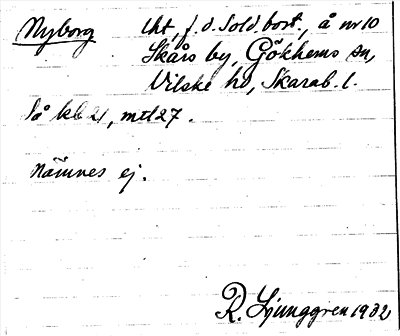 Nyborg lht, f.d. sold.bost., å nr 10
Skårs by, Gökhems sn,
Vilske hd, Skarab. l.
Så kbl 21, mtl 27.
Nämnes ej.
R. Ljunggren 1932